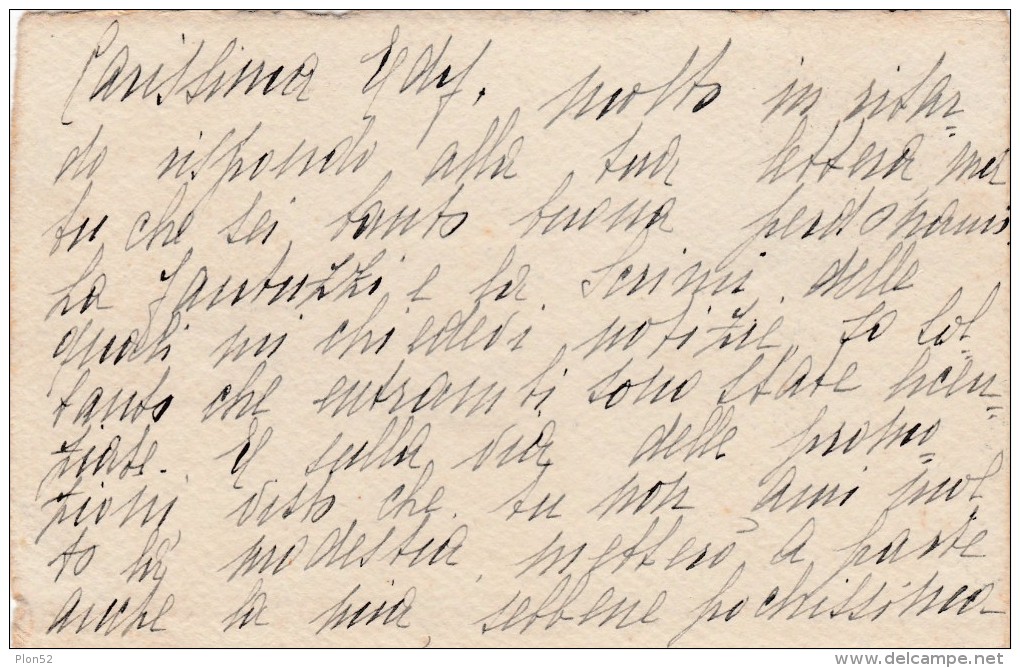 Carissima Edy, molto in ritar=
do rispondo alla tua lettera, ma
tu che sei tanto buona perdonami
La Fantuzzi e la Scrimi delle
quali mi chiedevi notizie, so sol=
tanto che entrambi sono state licen=
ziate. E sulla via delle promo=
zioni, visto che tu non ami mol
to la modestia, metterò a parte
anche la mia, sebbene pochissima
Plon52
www.delcampe.net